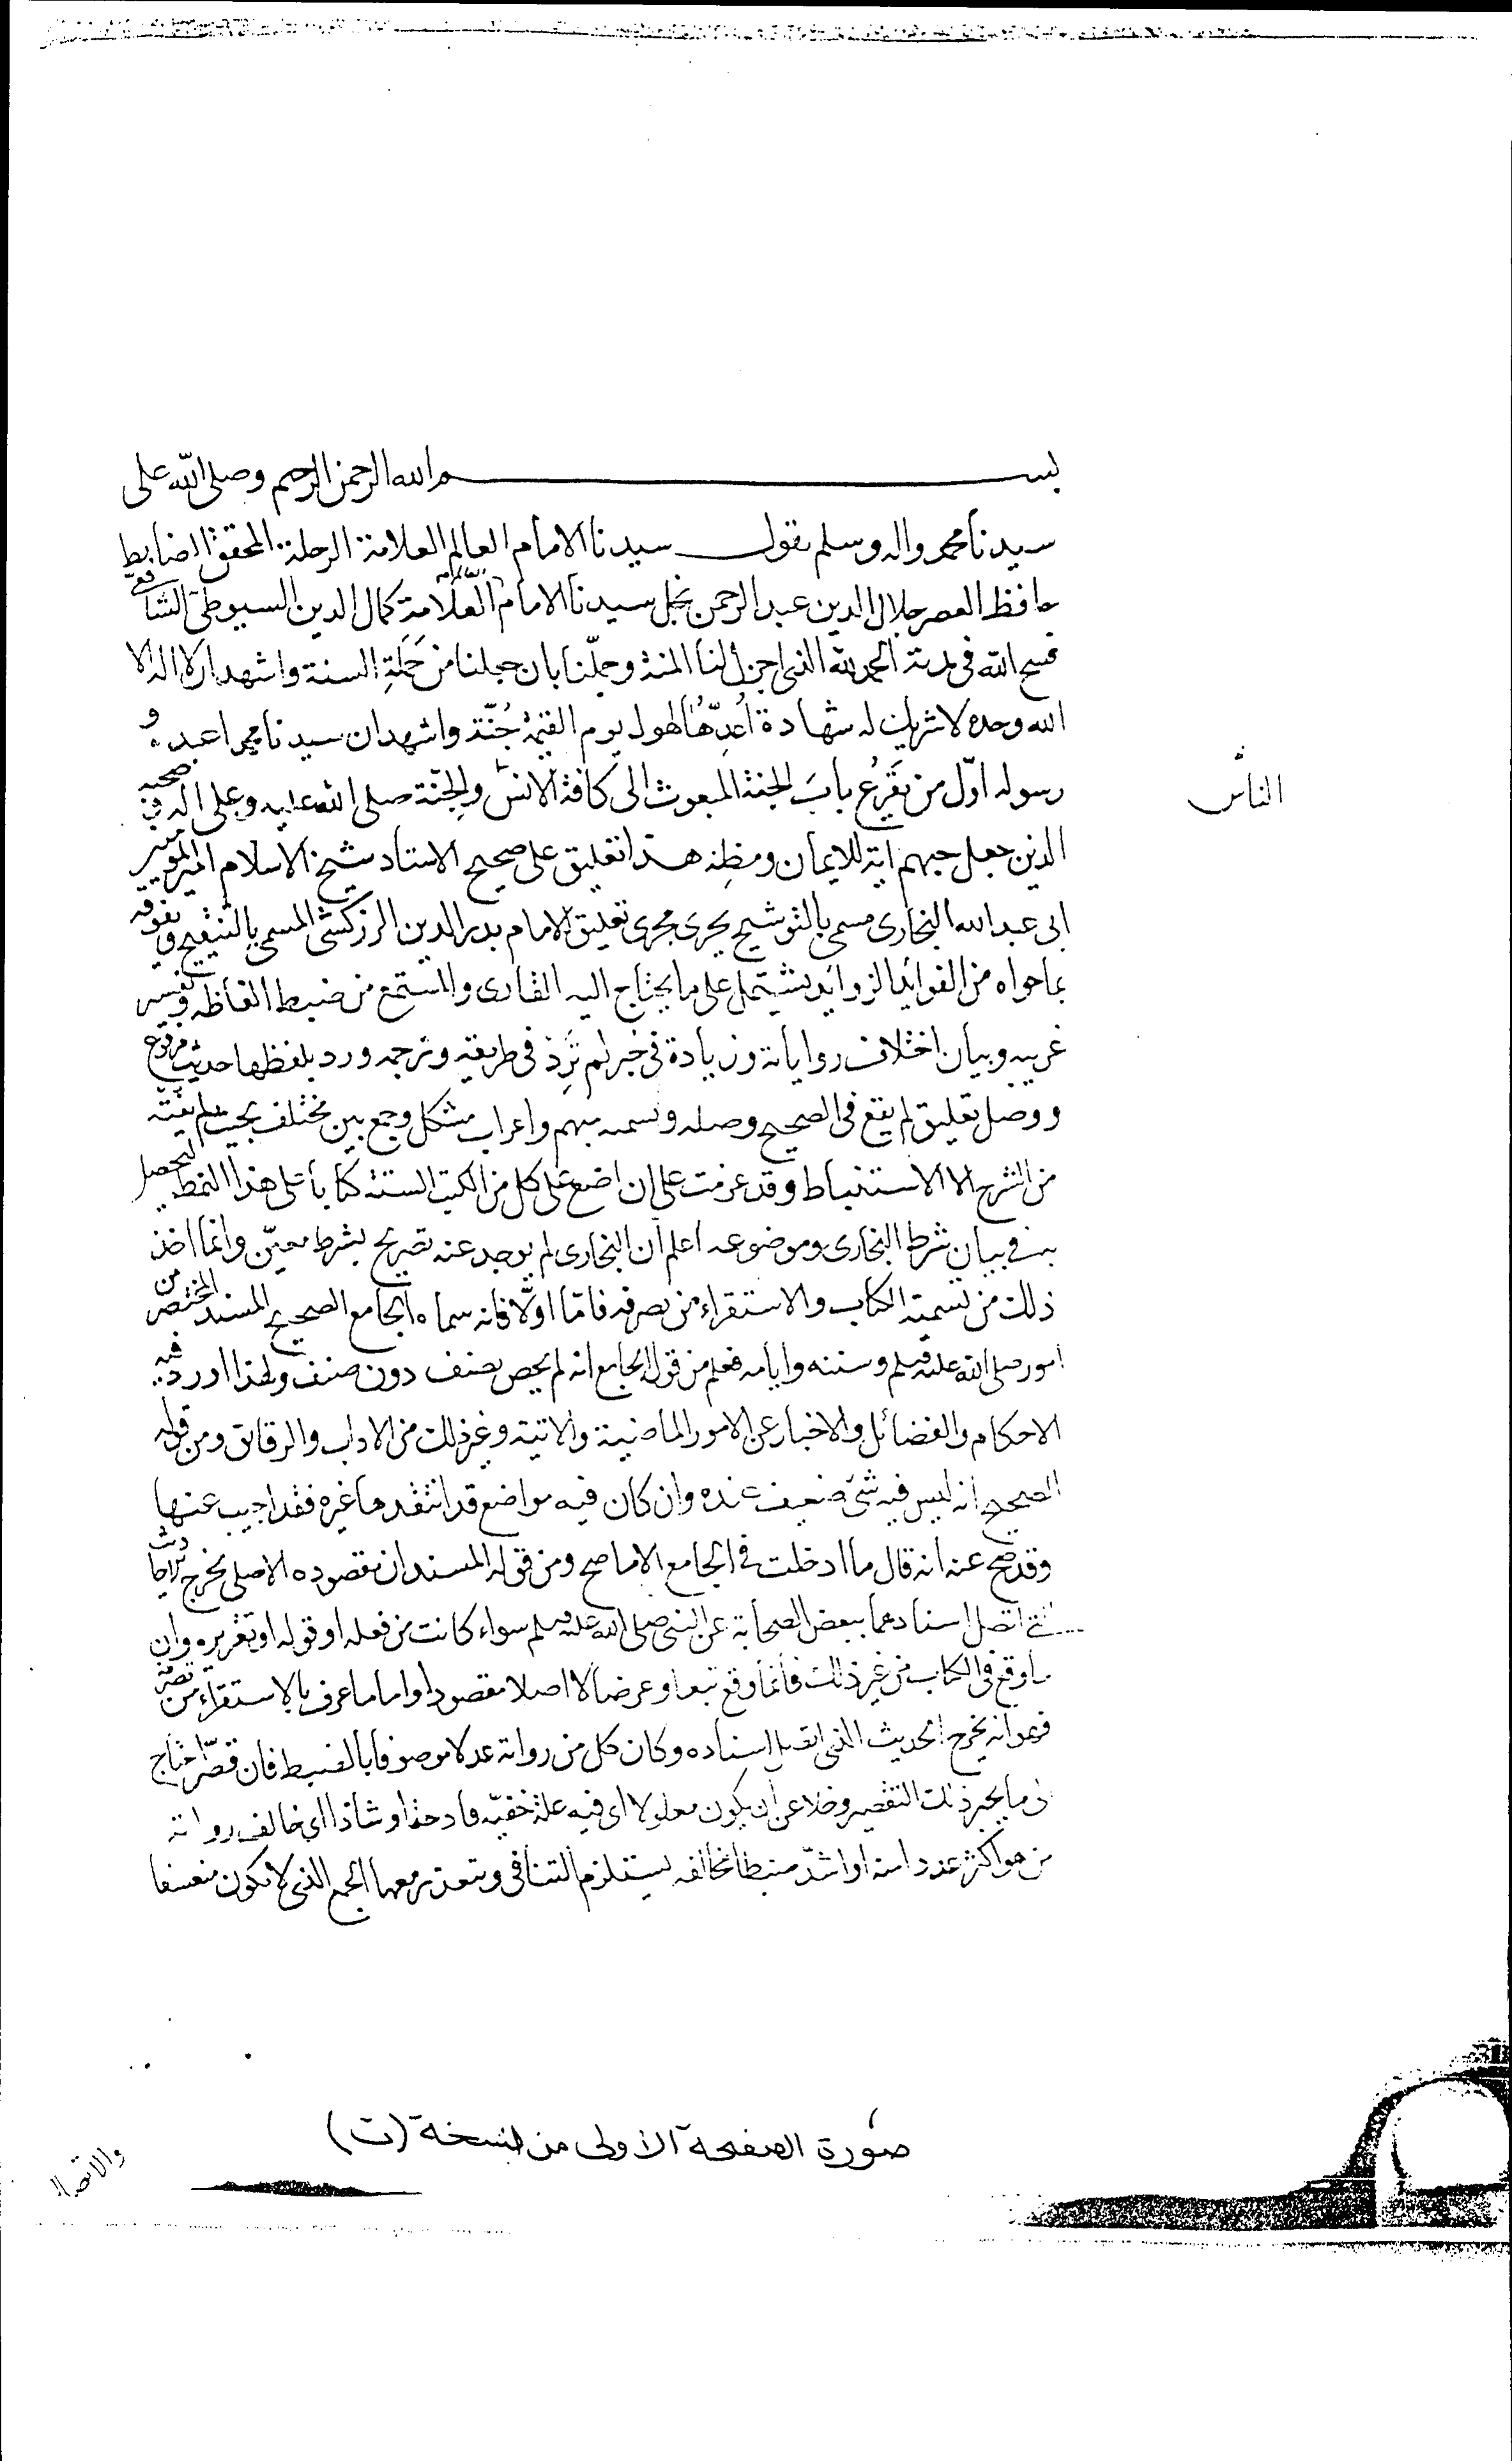 بسم الله الرحمن الرحيم وصلى الله على
سيدنا محمد واله وسلم يقول سيدنا الامام العالم العلامة الرحلة المحقق الضابط
حافظ العصر جلال الدين عبد الرحمن نجل سيدنا الامام العلامة كمال الدين السيوطى الشافعى
فسح الله فى مدته الحمد لله الذى اجزل لنا المنة وجملنا بان جعلنا من حَمَلَةِ السنة واشهد ان لا اله الا
الله وحده لا شريك له شهادة أعدّها لهول يوم القيمة جُنّة واشهد ان سيدنا محمدا عبده و
رسوله اوّل من يَقرَعُ بابَ الجنة المبعوث الى كافة الانس والجِنّة صلى الله عليه وعلى اله وصحبه
الناس
الذين جعل حبهم اية للايمان ومظنه هذا تعليق على صحيح الاستاد شيخ الاسلام امير المومنين
ابى عبد الله البخارى مسمى بالتوشيح يجرى مجرى تعليق الامام بدر الدين الزركشى المسمى بالتنقيح ويفوقه
بما حواه من الفوائد الزوايد يشتمل على ما يحتاج اليه القارى والمستمع من ضبط الفاظه وتفسير
غريبه وبيان اختلاف رواياته وزيادة فى خبر لم تَرِد فى طريقه وترجمه ورد بلفظها حديث مرفوع
ووصل تعليق لم يقع فى الصحيح وصله وتسمية مبهم واعراب مشكل وجمع بين مختلف بحيث لم يفته
من الشرح الا الاستنباط وقد عزمت على ان اضع على كل من الكتب الستة كتابا على هذا النمط ليحصل
فى بيان شرط البخارى وموضوعه اعلم ان البخارى لم يوجد عنه تصريح بشرط معيّن وانما اخذ
ذلك من تسمية الكتاب والاستقراء من تصرفه فامّا اولًا فانه سماه الجامع الصحيح المسند المختصر من
امور صلى الله عليه وسلم وسننه وايامه فعلم من قوله الجامع انه لم يخص بصنف دون صنف ولهذا اورد فيه
الاحكام والفضائل والاخبار عن الامور الماضية والاتية وغير ذلك من الاداب والرقائق ومن قوله
الصحيح انه ليس فيه شئ ضعيف عنده وان كان فيه مواضع قد انتقدها غيره فقد اجيب عنها
وقد صح عنه انه قال ما ادخلت فى الجامع الا ما صح ومن قوله المسند ان مقصوده الاصلى تخرج الاحاديث
التى اتصل اسنادها ببعض الصحابة عن النبى صلى الله عليه وسلم سواء كانت من فعله او قوله او تقريره وان
ما وقع فى الكتاب من غير ذلك فانما وقع تبعا وعرضا لا اصلا مقصودا واما ما عرف بالاستقراء من تصرفه
فهو انه يخرج الحديث الذى اتصل اسناده وكان كل من رواته عدلا موصوفا بالضبط فان قصّر احتاج
الى ما يجبر ذلك التقصير وخلا عن ان يكون معلولا اى فيه علة خفيّه قادحة او شاذا اى خالف رواته
من هو اكثر عددا منه او اشدّ ضبطا مخالفه يستلزم التنافى ويتعذر معها الجمع الذى لا يكون متعسفا
والاتصال
صورة الصفحة الأولى من نسخة (ت)